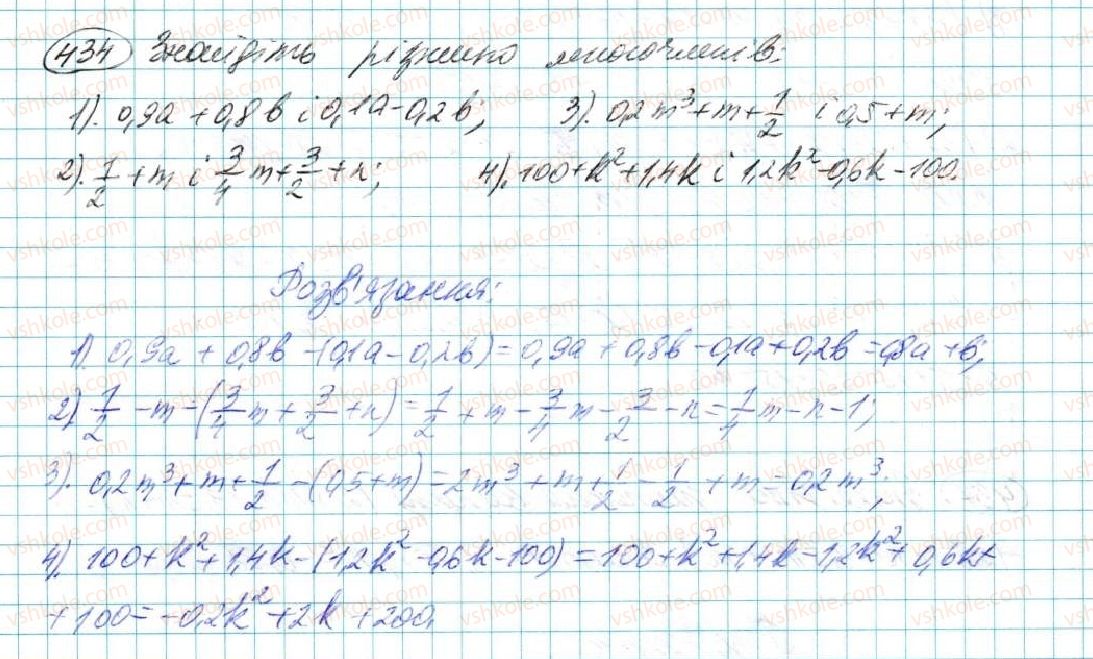 434 Знайдіть різницю многочленів:
1). 0,9a + 0,8b і 0,1a - 0,2b; 3). 0,2m³ + m + 1/2 і 0,5 + m;
2). 1/2 + m і 3/4 m + 3/2 + n; 4). 100 + k² + 1,4k і 1,2k² - 0,6k - 100.
Розв'язання:
1). 0,9a + 0,8b - (0,1a - 0,2b) = 0,9a + 0,8b - 0,1a + 0,2b = 0,8a + b;
2). 1/2 - m - (3/4 m + 3/2 + n) = 1/2 + m - 3/4 m - 3/2 - n = 1/4 m - n - 1;
3). 0,2m³ + m + 1/2 - (0,5 + m) = 2m³ + m + 1/2 - 1/2 + m = 0,2m³;
4). 100 + k² + 1,4k - (1,2k² - 0,6k - 100) = 100 + k² + 1,4k - 1,2k² + 0,6k +
+ 100 = -0,2k² + 2k + 200.